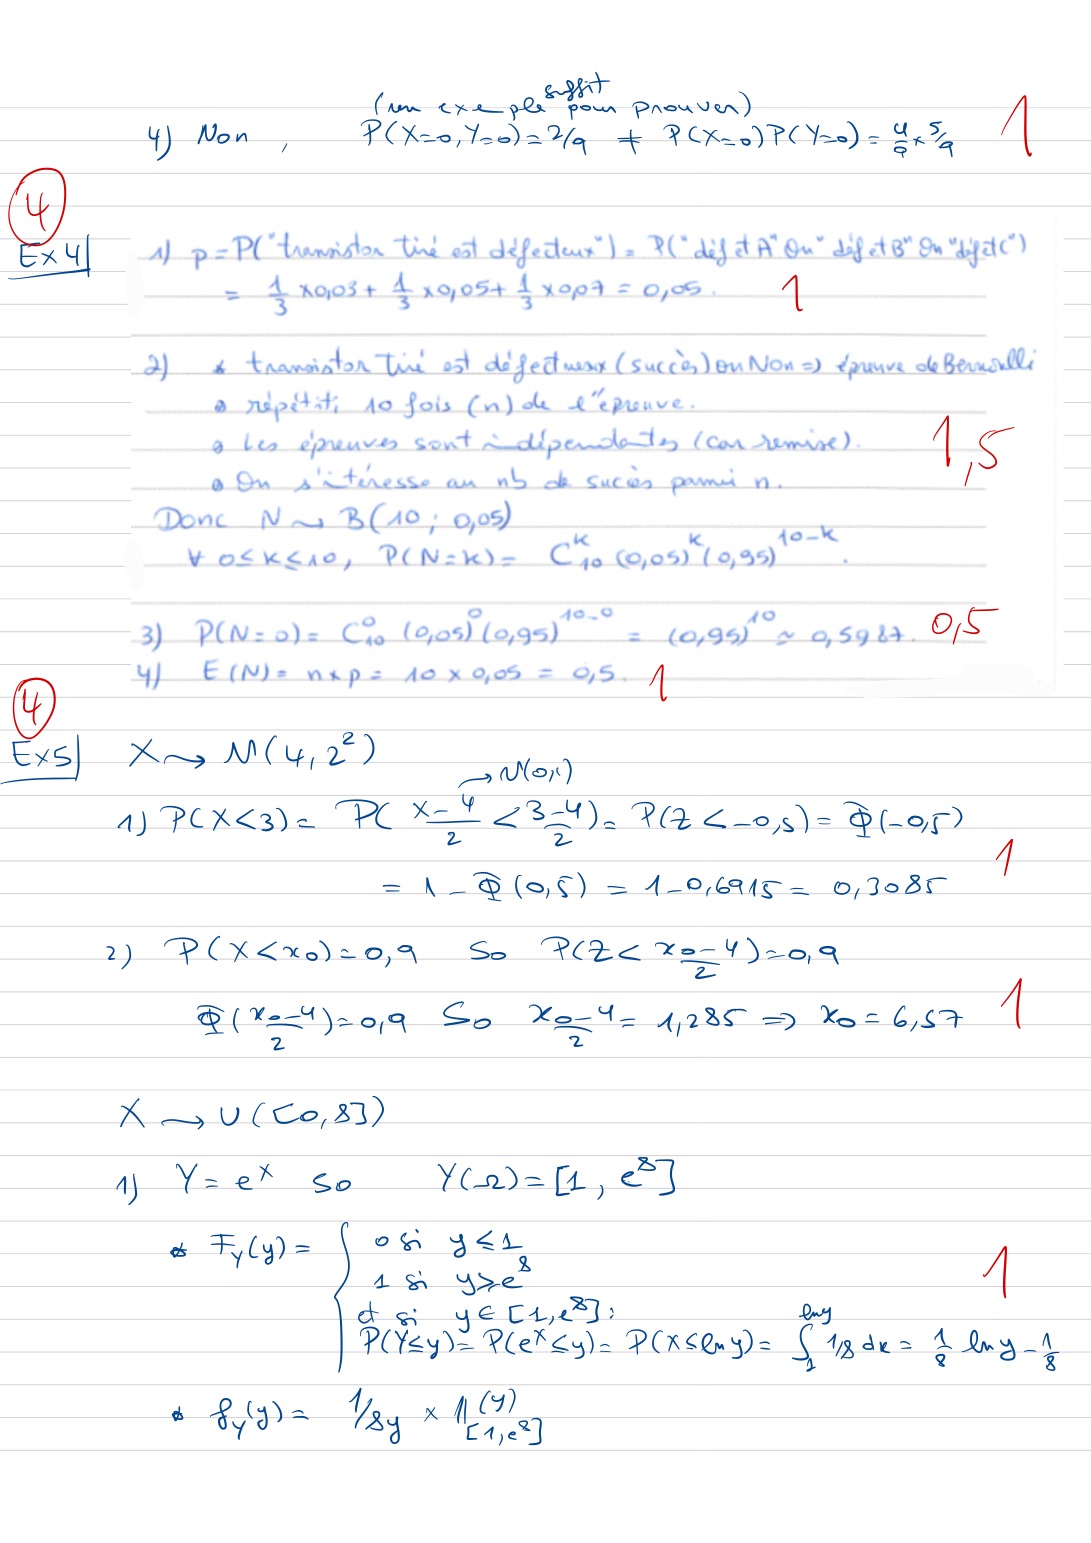 (un exemple suffit pour prouver)
4) Non, P(X=0,Y=0)=2/9 ≠ P(X=0)P(Y=0)=4/9 × 5/9
1
4
Ex 4
1) p=P("transistor tiré est défecteux")=P("déf et A" ou "déf et B" ou "déf et C")
= 1/3 ×0,03+ 1/3 ×0,05+ 1/3 ×0,07 = 0,05.
1
2) * transistor tiré est défectueux (succès) ou Non => épreuve de Bernoulli
• répétit° 10 fois (n) de l'épreuve.
• Les épreuves sont indépendantes (car remise).
1,5
• On s'intéresse au nb de succès parmi n.
Donc N ⤳ B(10; 0,05)
∀ 0≤k≤10, P(N=k)= C₁₀ᵏ (0,05)ᵏ (0,95)¹⁰⁻ᵏ.
3) P(N=0)= C₁₀⁰ (0,05)⁰ (0,95)¹⁰⁻⁰ = (0,95)¹⁰ ≃ 0,5987.
0,5
4) E(N)= n×p = 10 × 0,05 = 0,5.
1
4
Ex5
X ⤳ N(4, 2²)
→ N(0,1)
1) P(X<3)= P( (X-4)/2 < (3-4)/2 )= P(Z < -0,5)= Φ(-0,5)
= 1 - Φ(0,5) = 1-0,6915 = 0,3085
1
2) P(X<x₀)=0,9 So P(Z< (x₀-4)/2)=0,9
Φ((x₀-4)/2)=0,9 So (x₀-4)/2 = 1,285 => x₀ = 6,57
1
X ⤳ U([0,8])
1) Y= eˣ so Y(Ω)=[1, e⁸]
* F_Y(y)= { 0 si y≤1
1 si y≥e⁸
et si y∈[1,e⁸]:
P(Y≤y)= P(eˣ≤y)= P(X≤ln y)= ∫₁^{ln y} 1/8 dx = 1/8 ln y - 1/8
1
* f_Y(y)= 1/8y × 𝟙_{[1,e⁸]}(y)